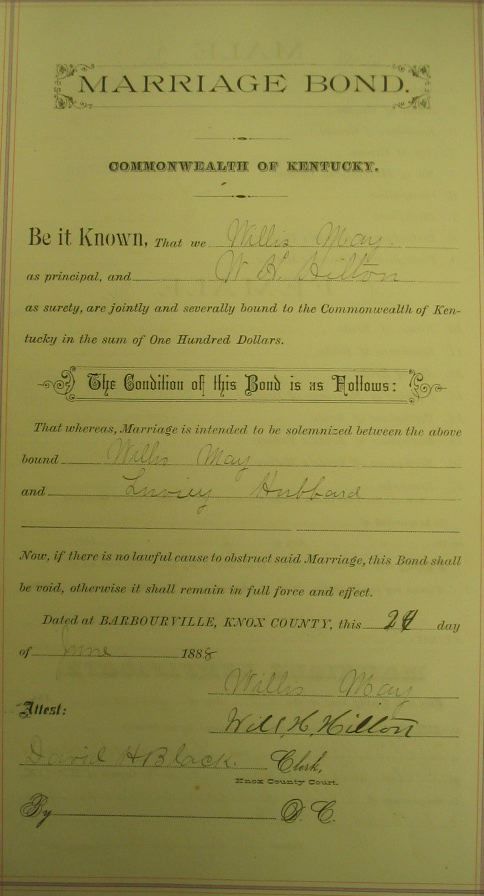 MARRIAGE BOND.
COMMONWEALTH OF KENTUCKY.
Be it Known, That we Willis May
as principal, and W. H. Hilton
as surety, are jointly and severally bound to the Commonwealth of Ken-
tucky in the sum of One Hundred Dollars.
The Condition of this Bond is as Follows:
That whereas, Marriage is intended to be solemnized between the above
bound Willis May
and Hubbard
Now, if there is no lawful cause to obstruct said Marriage, this Bond shall
be void, otherwise it shall remain in full force and effect.
Dated at BARBOURVILLE, KNOX COUNTY, this day
of June 1888
Willis May
Attest:
Will, H, Hilton
David H Black. Clerk,
Knox County Court.
By D. C.